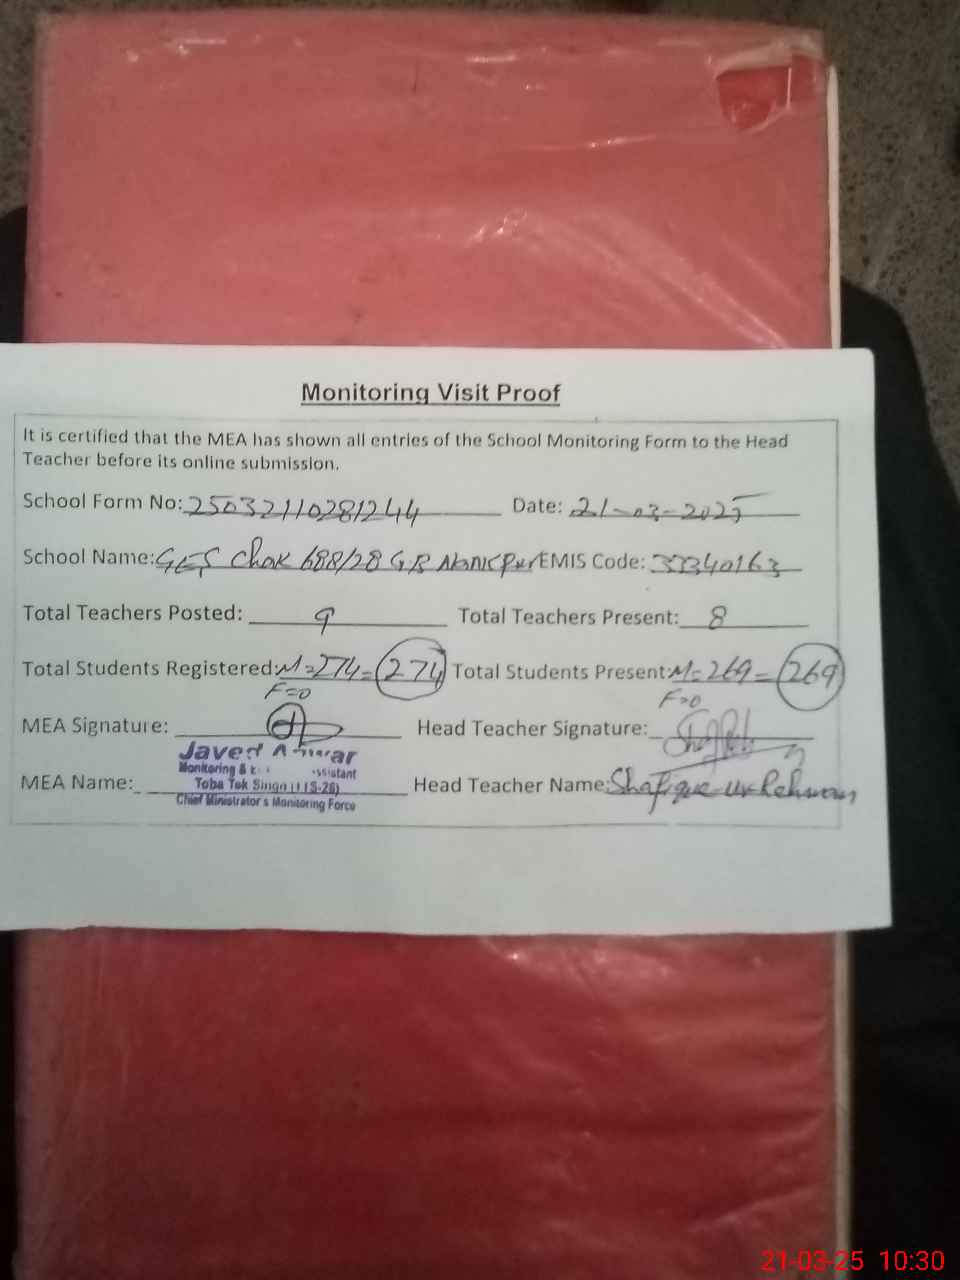 Monitoring Visit Proof
It is certified that the MEA has shown all entries of the School Monitoring Form to the Head
Teacher before its online submission.
School Form No: 25032110281244 Date: 21-03-2025
School Name: GES Chak 688/28 GB EMIS Code: 33340163
Total Teachers Posted: 9 Total Teachers Present: 8
Total Students Registered: M=274=274 Total Students Present: M=269=269
F=0 F=0
MEA Signature: Head Teacher Signature:
Javed
Monitoring &
MEA Name: Toba Tek Singh Head Teacher Name: Shafique ur Rehman
Chief Ministrator's Monitoring Force
21-03-25 10:30